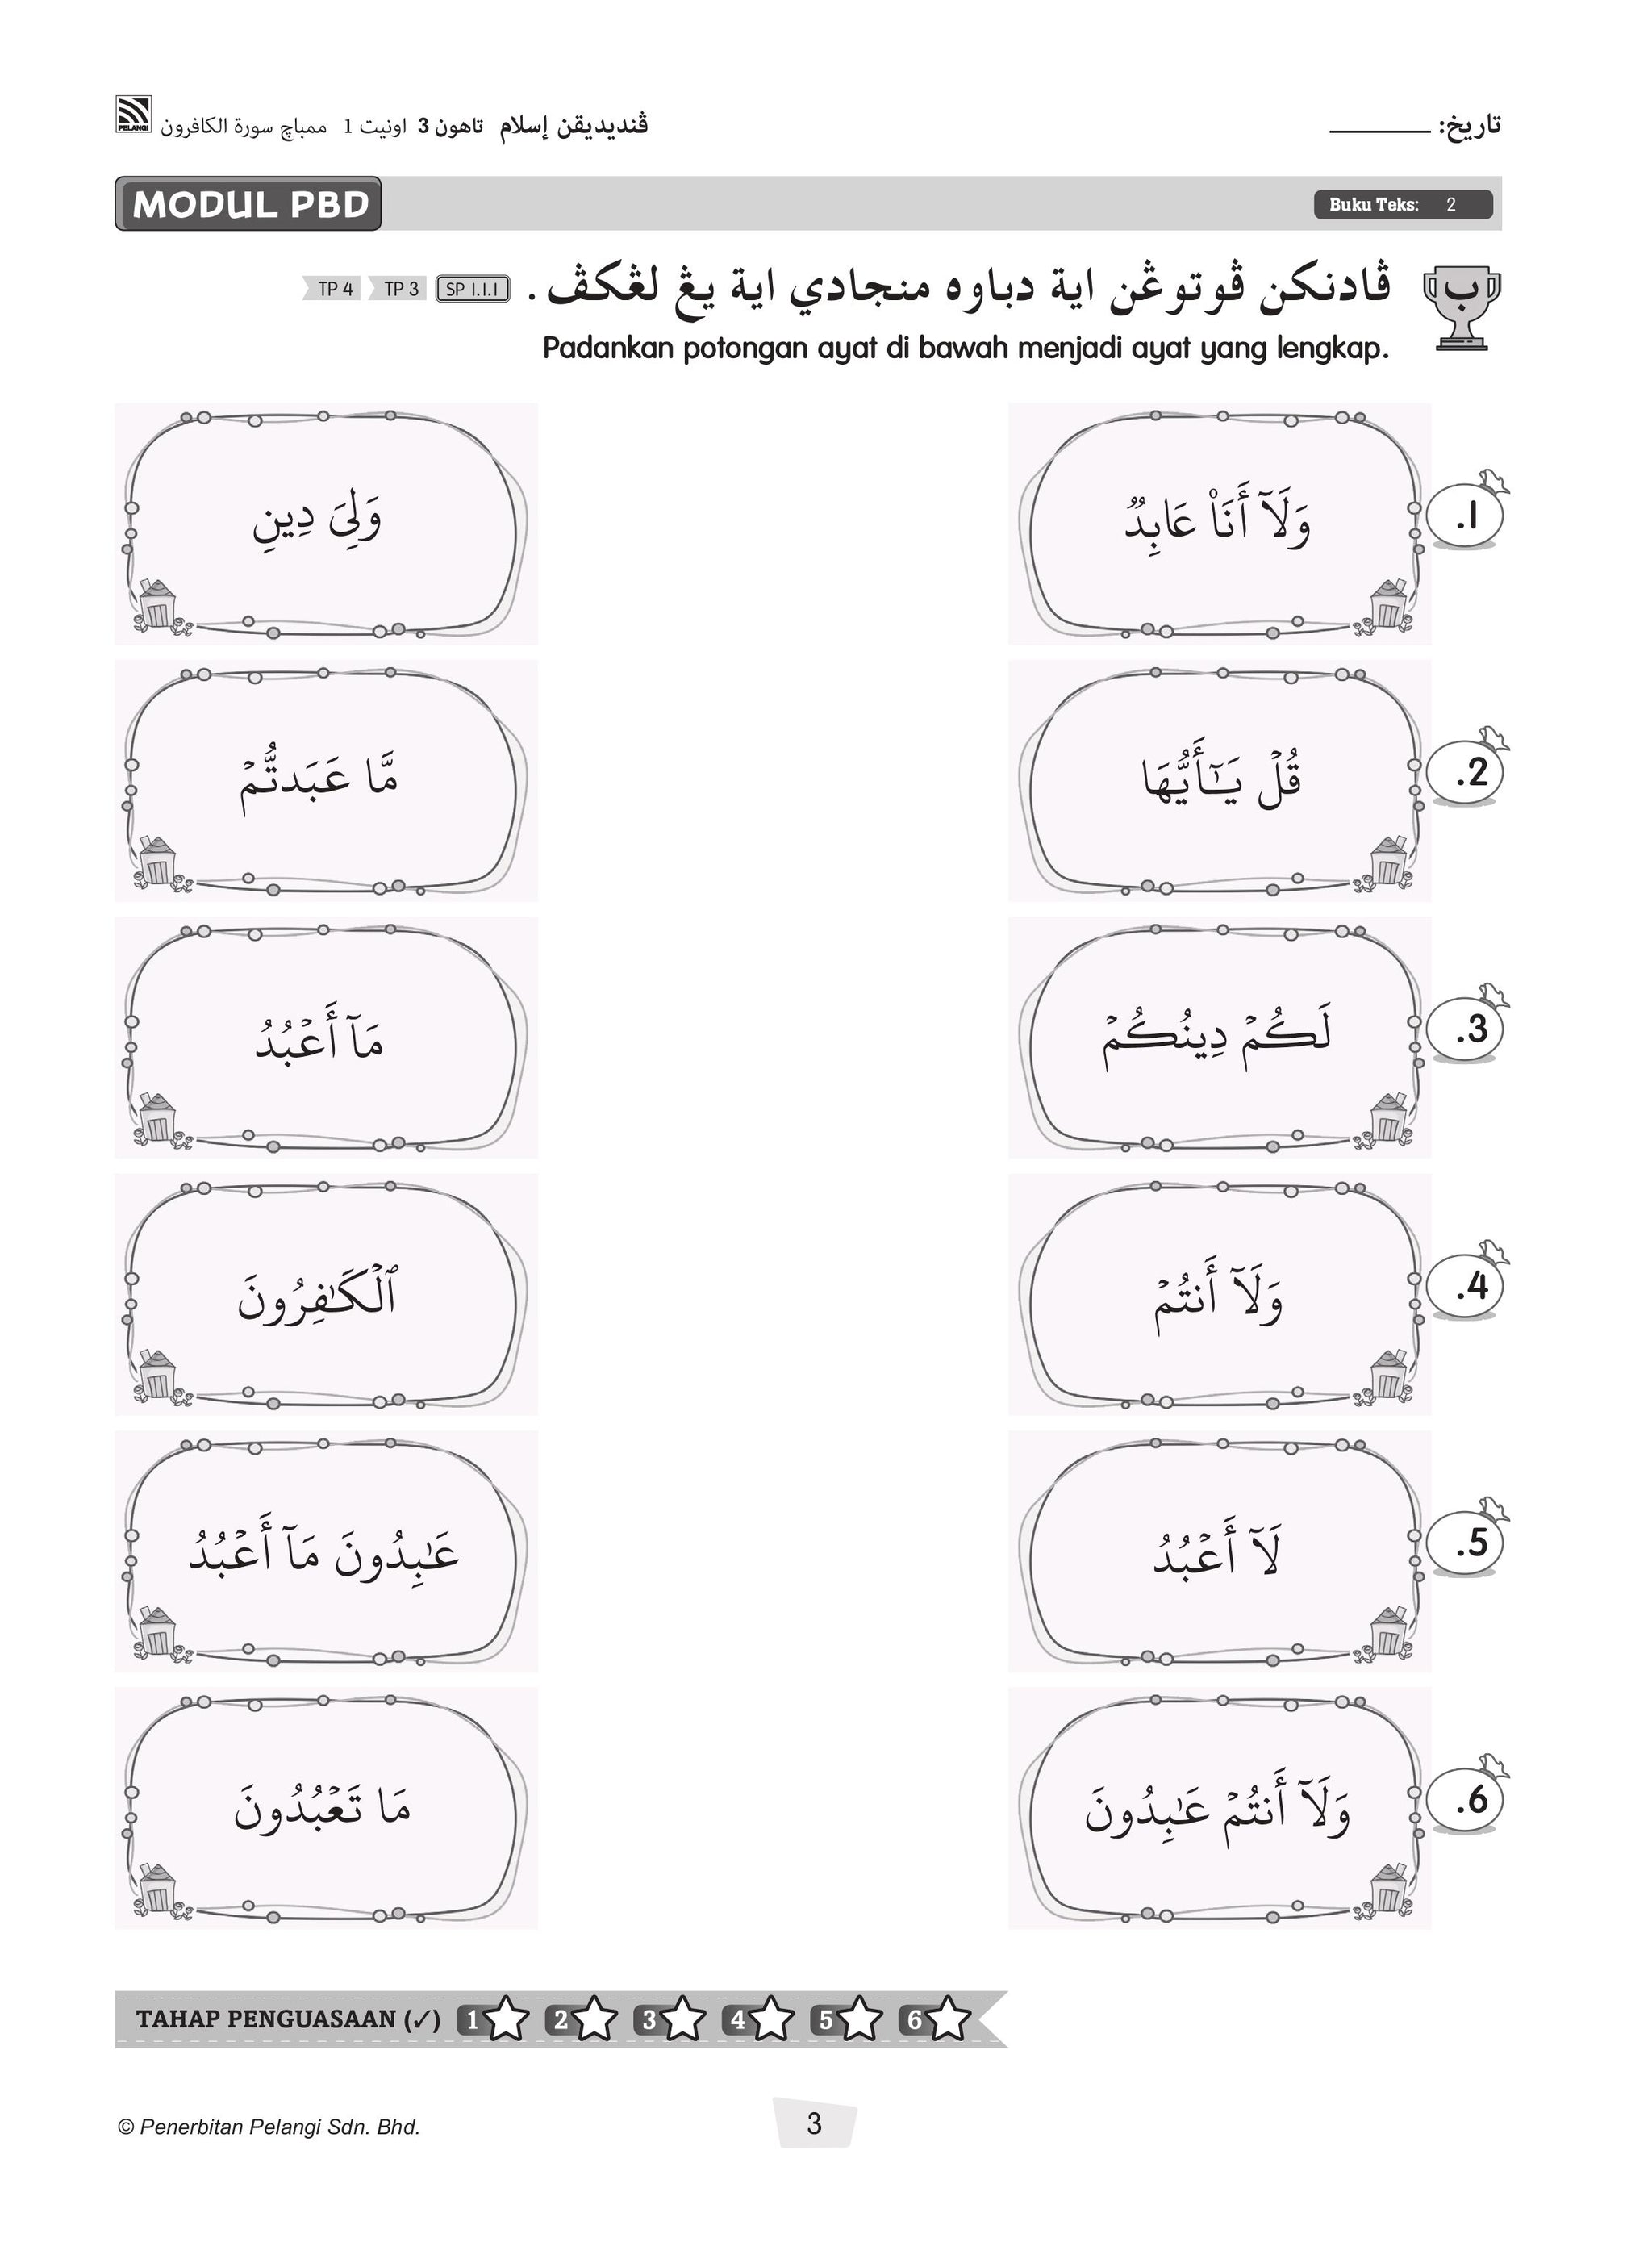 تاريخ: ________
ڤنديديقن إسلام تاهون 3 اونيت 1 ممباچ سورة الكافرون
PELANGI
MODUL PBD
Buku Teks: 2
ب
ڤادنکن ڤوتوڠن اية دباوه منجادي اية يڠ لڠکڤ. SP 1.1.1 TP 3 TP 4
Padankan potongan ayat di bawah menjadi ayat yang lengkap.
1. وَلَآ أَنَا۠ عَابِدٌ
وَلِىَ دِينِ
2. قُلْ يَـٰٓأَيُّهَا
مَّا عَبَدتُّمْ
3. لَكُمْ دِينُكُمْ
مَآ أَعْبُدُ
4. وَلَآ أَنتُمْ
ٱلْكَـٰفِرُونَ
5. لَآ أَعْبُدُ
عَـٰبِدُونَ مَآ أَعْبُدُ
6. وَلَآ أَنتُمْ عَـٰبِدُونَ
مَا تَعْبُدُونَ
TAHAP PENGUASAAN (✓) 1 2 3 4 5 6
© Penerbitan Pelangi Sdn. Bhd.
3